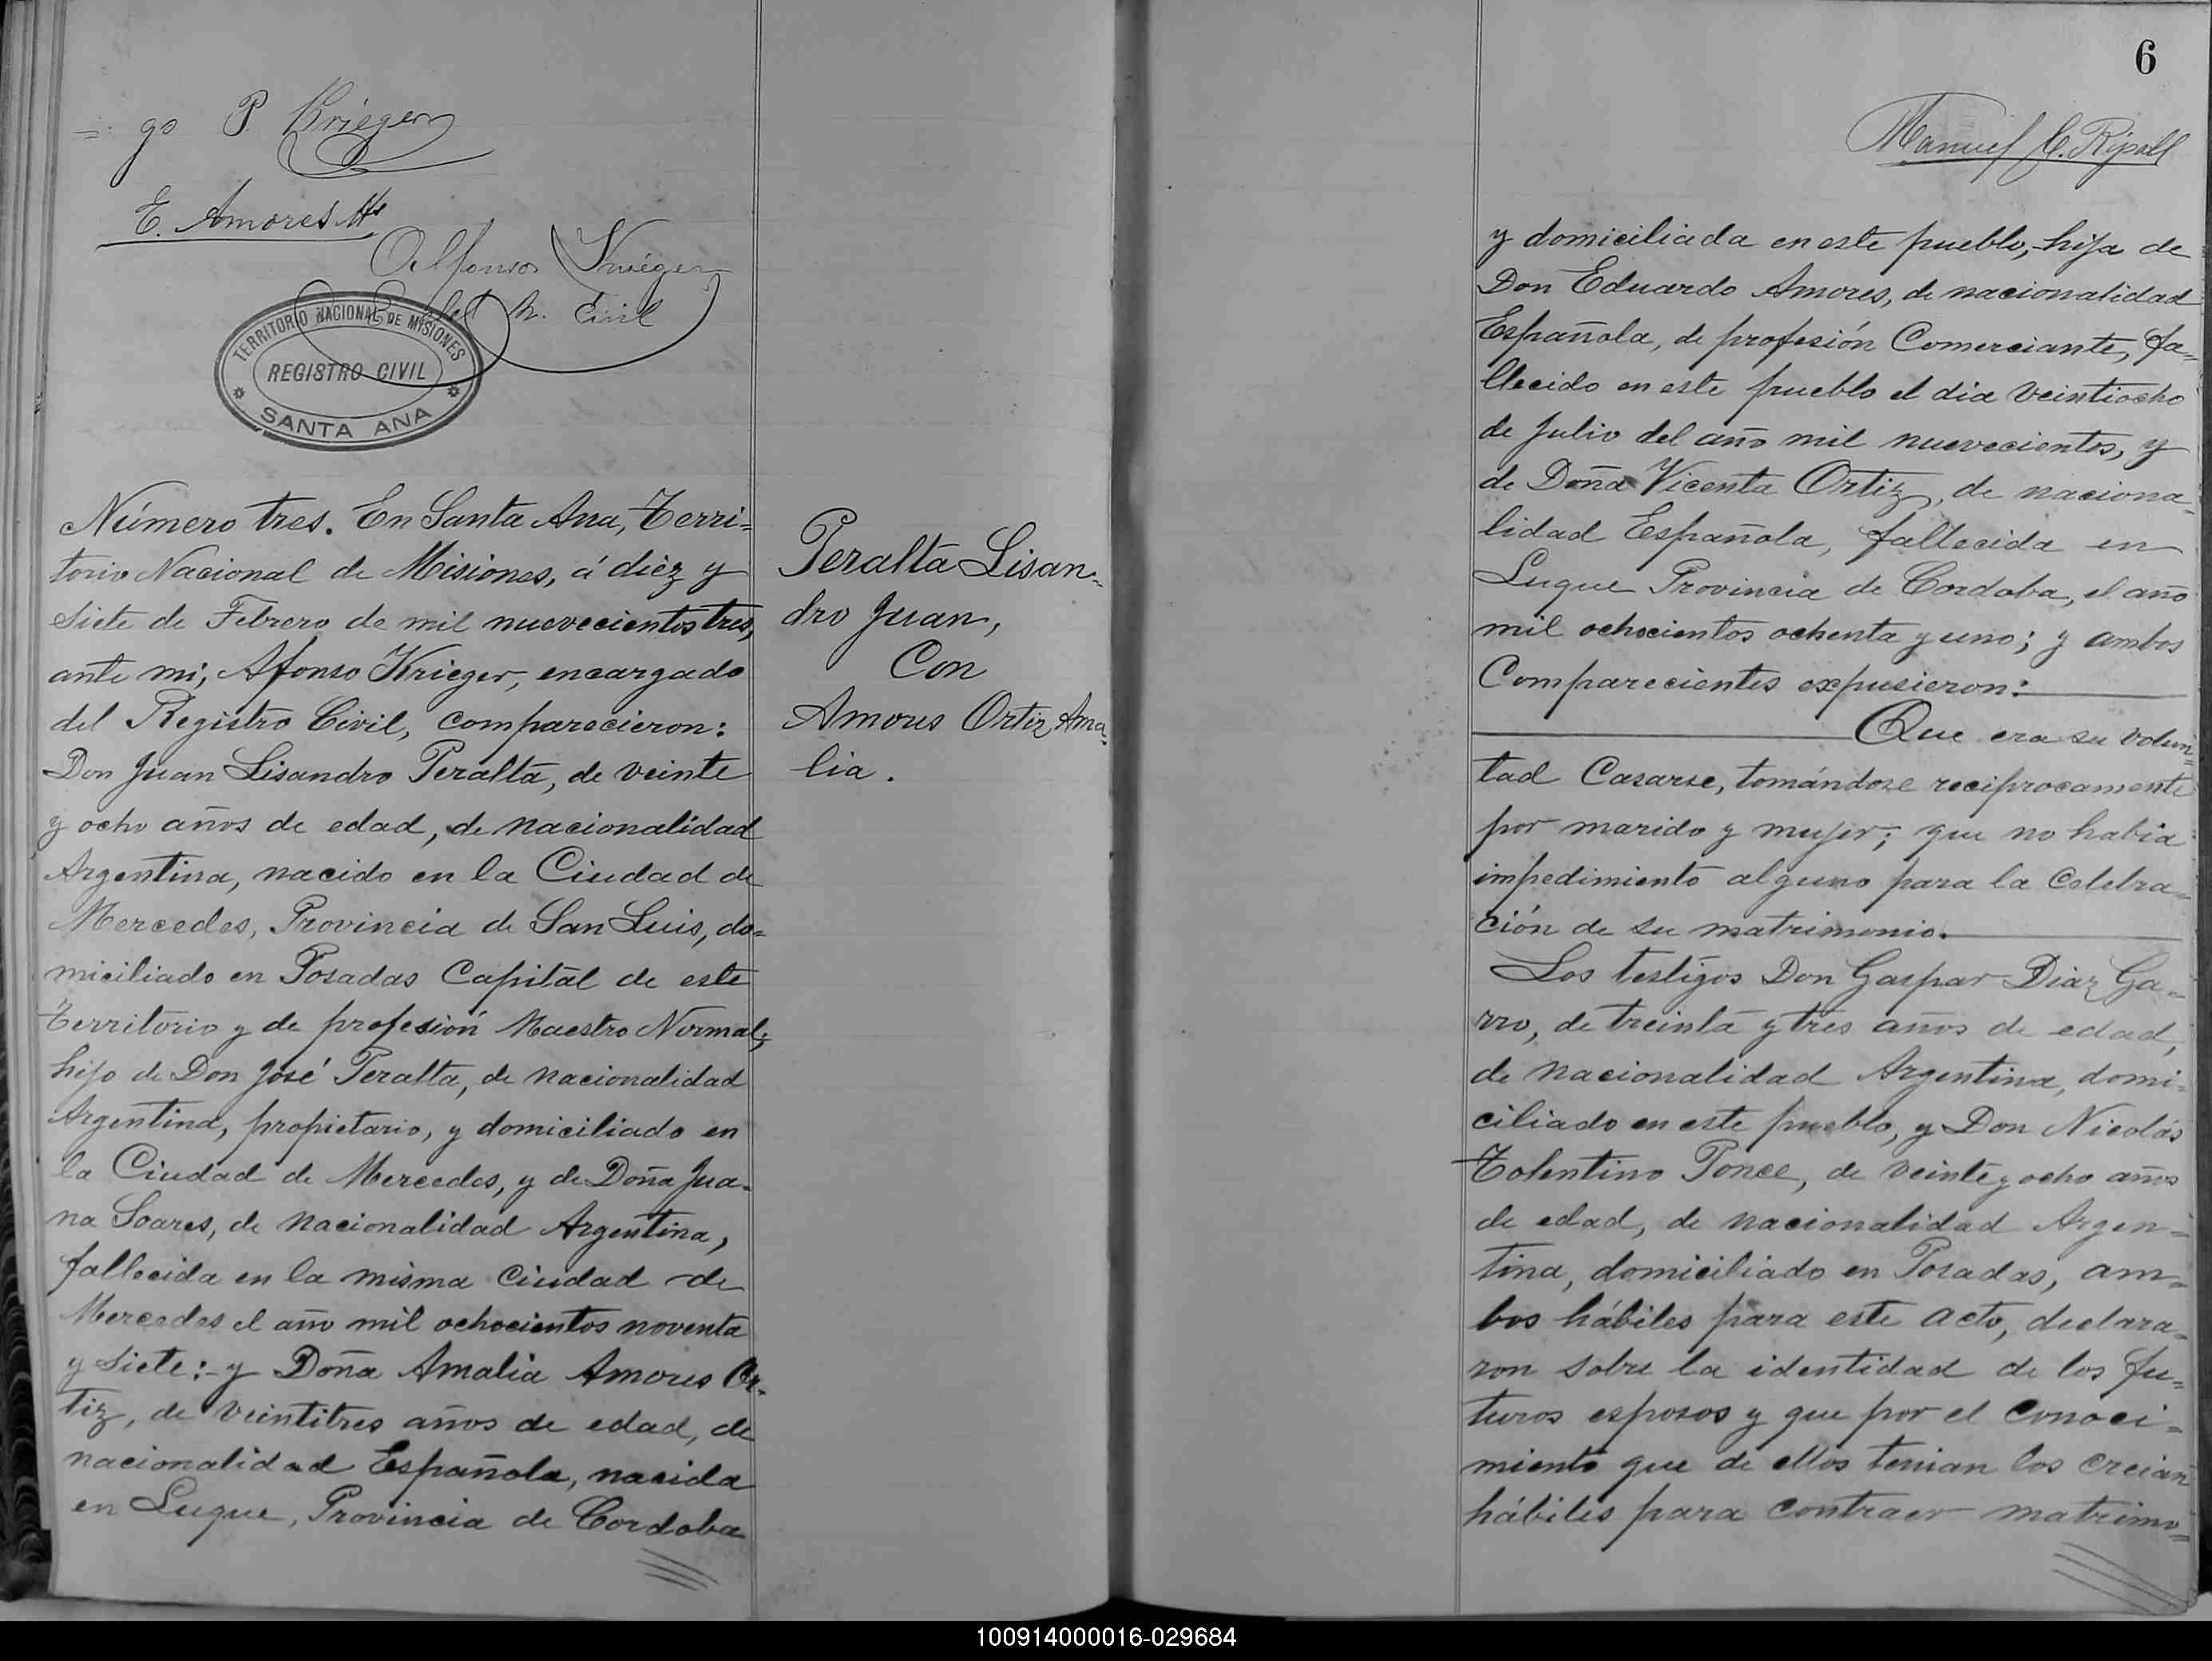 go P Krieger
E. Amores Hs
Alfonso Krieger
R. Civil
TERRITORIO NACIONAL DE MISIONES
REGISTRO CIVIL
SANTA ANA
Número tres. En Santa Ana, Terri=
torio Nacional de Misiones, á diéz y
siete de Febrero de mil nuevecientos tres,
ante mi, Afonso Krieger, encargado
del Registro Civil, comparecieron:
Don Juan Lisandro Peralta, de veinte
y ocho años de edad, de nacionalidad
Argentina, nacido en la Ciudad de
Mercedes, Provincia de San Luis, do=
miciliado en Posadas Capital de este
Territorio y de profesión Maestro Normal,
hijo de Don José Peralta, de nacionalidad
Argentina, propietario, y domiciliado en
la Ciudad de Mercedes, y de Doña Jua=
na Soares, de nacionalidad Argentina,
fallecida en la misma Ciudad de
Mercedes el año mil ochocientos noventa
y siete:- y Doña Amalia Amores Or=
tiz, de veintitres años de edad, de
nacionalidad Española, nacida
en Luque, Provincia de Cordoba
Peralta Lisan=
dro Juan,
Con
Amores Ortiz Ama=
lia.
6
Manuel C. Ripoll
y domiciliada en este pueblo,- hija de
Don Eduardo Amores, de nacionalidad
Española, de profesión Comerciante, fa=
llecido en este pueblo el dia veintiocho
de Julio del año mil nuevecientos, y
de Doña Vicenta Ortiz, de naciona=
lidad Española, fallecida en
Luque Provincia de Cordoba, el año
mil ochocientos ochenta y uno; y ambos
Comparecientes expusieron:
Que era su volun=
tad Casarse, tomándose reciprocamente
por marido y mujer; que no habia
impedimiento alguno para la Celebra=
ción de su matrimonio.
Los testigos Don Gaspar Diaz Ga=
rro, de treinta y tres años de edad,
de nacionalidad Argentina, domi=
ciliado en este pueblo, y Don Nicolás
Tolentino Ponce, de veinte y ocho años
de edad, de nacionalidad Argen=
tina, domiciliado en Posadas, am=
bos hábiles para este acto, declara=
ron sobre la identidad de los fu=
turos esposos y que por el conoci=
miento que de ellos tenian los creian
hábiles para contraer matrimo=
100914000016-029684